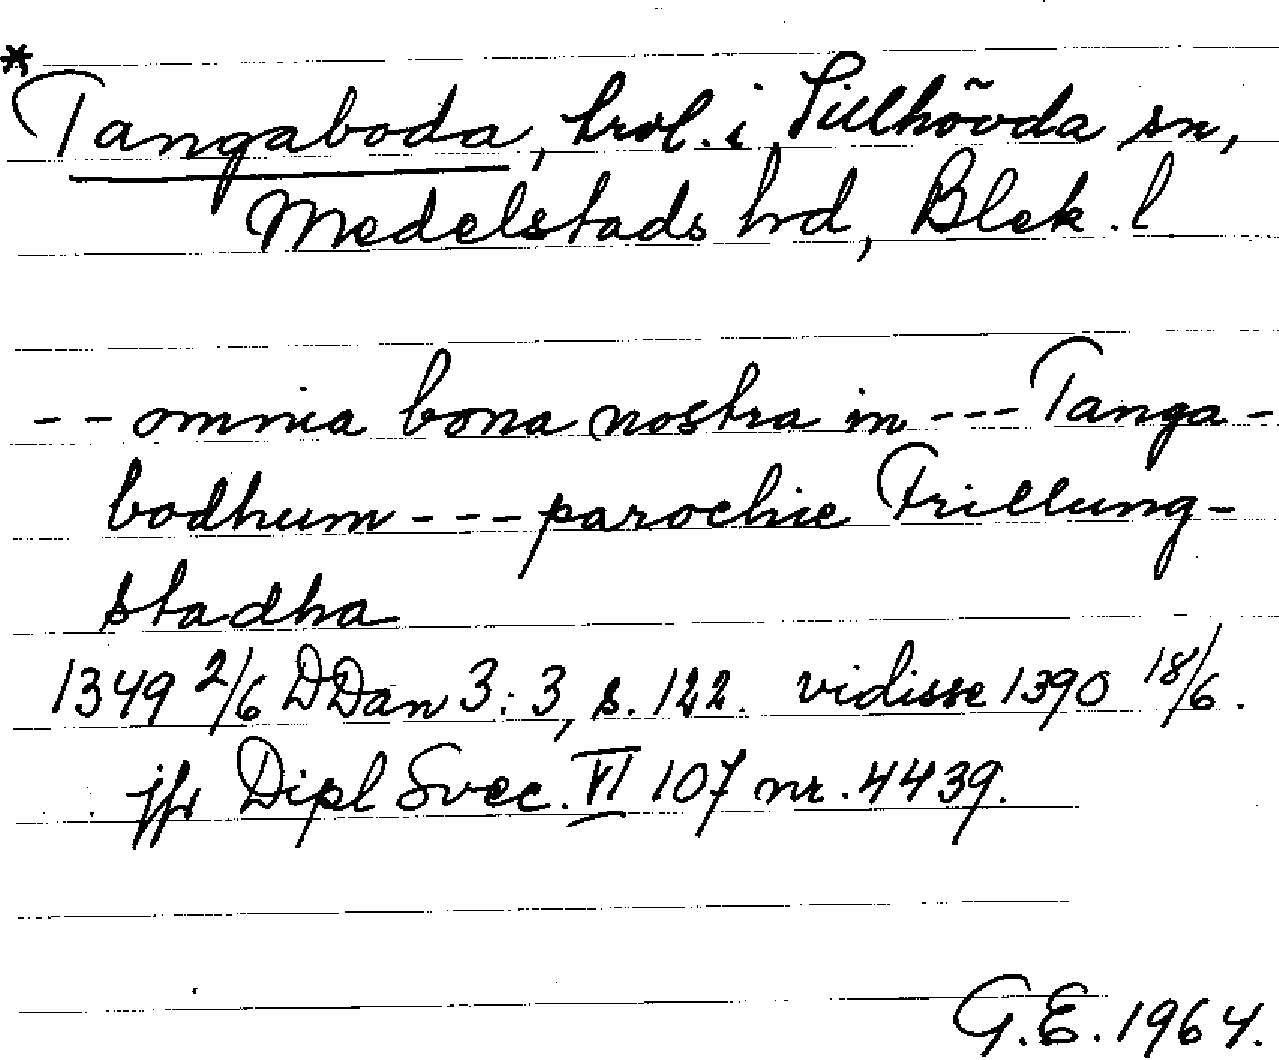 *
Tangaboda, trol. i Sillhövda sn,
Medelstads hrd, Blek. l
-- omnia bona nostra in --- Tanga-
bodhum --- parochie Frillung-
stadha
1349 2/6 DDan 3:3, s. 122. vidisse 1390 18/6.
jfr Dipl Svec. VI 107 nr. 4439.
G.E. 1964.